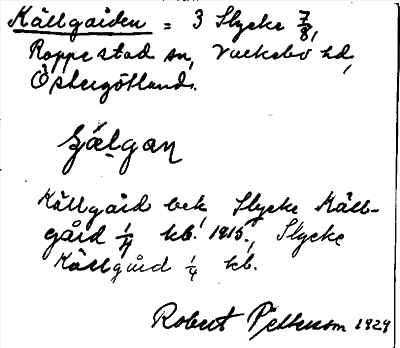 Källgården = 3 Slycke 7/8,
Roppestad sn, Valkebo hd,
Östergötland.
Källgård bek. Slycke Käll-
gård 1/4 kb. 1915., Slycke
Källgård 1/4 kb.
Robert Pettersson 1929